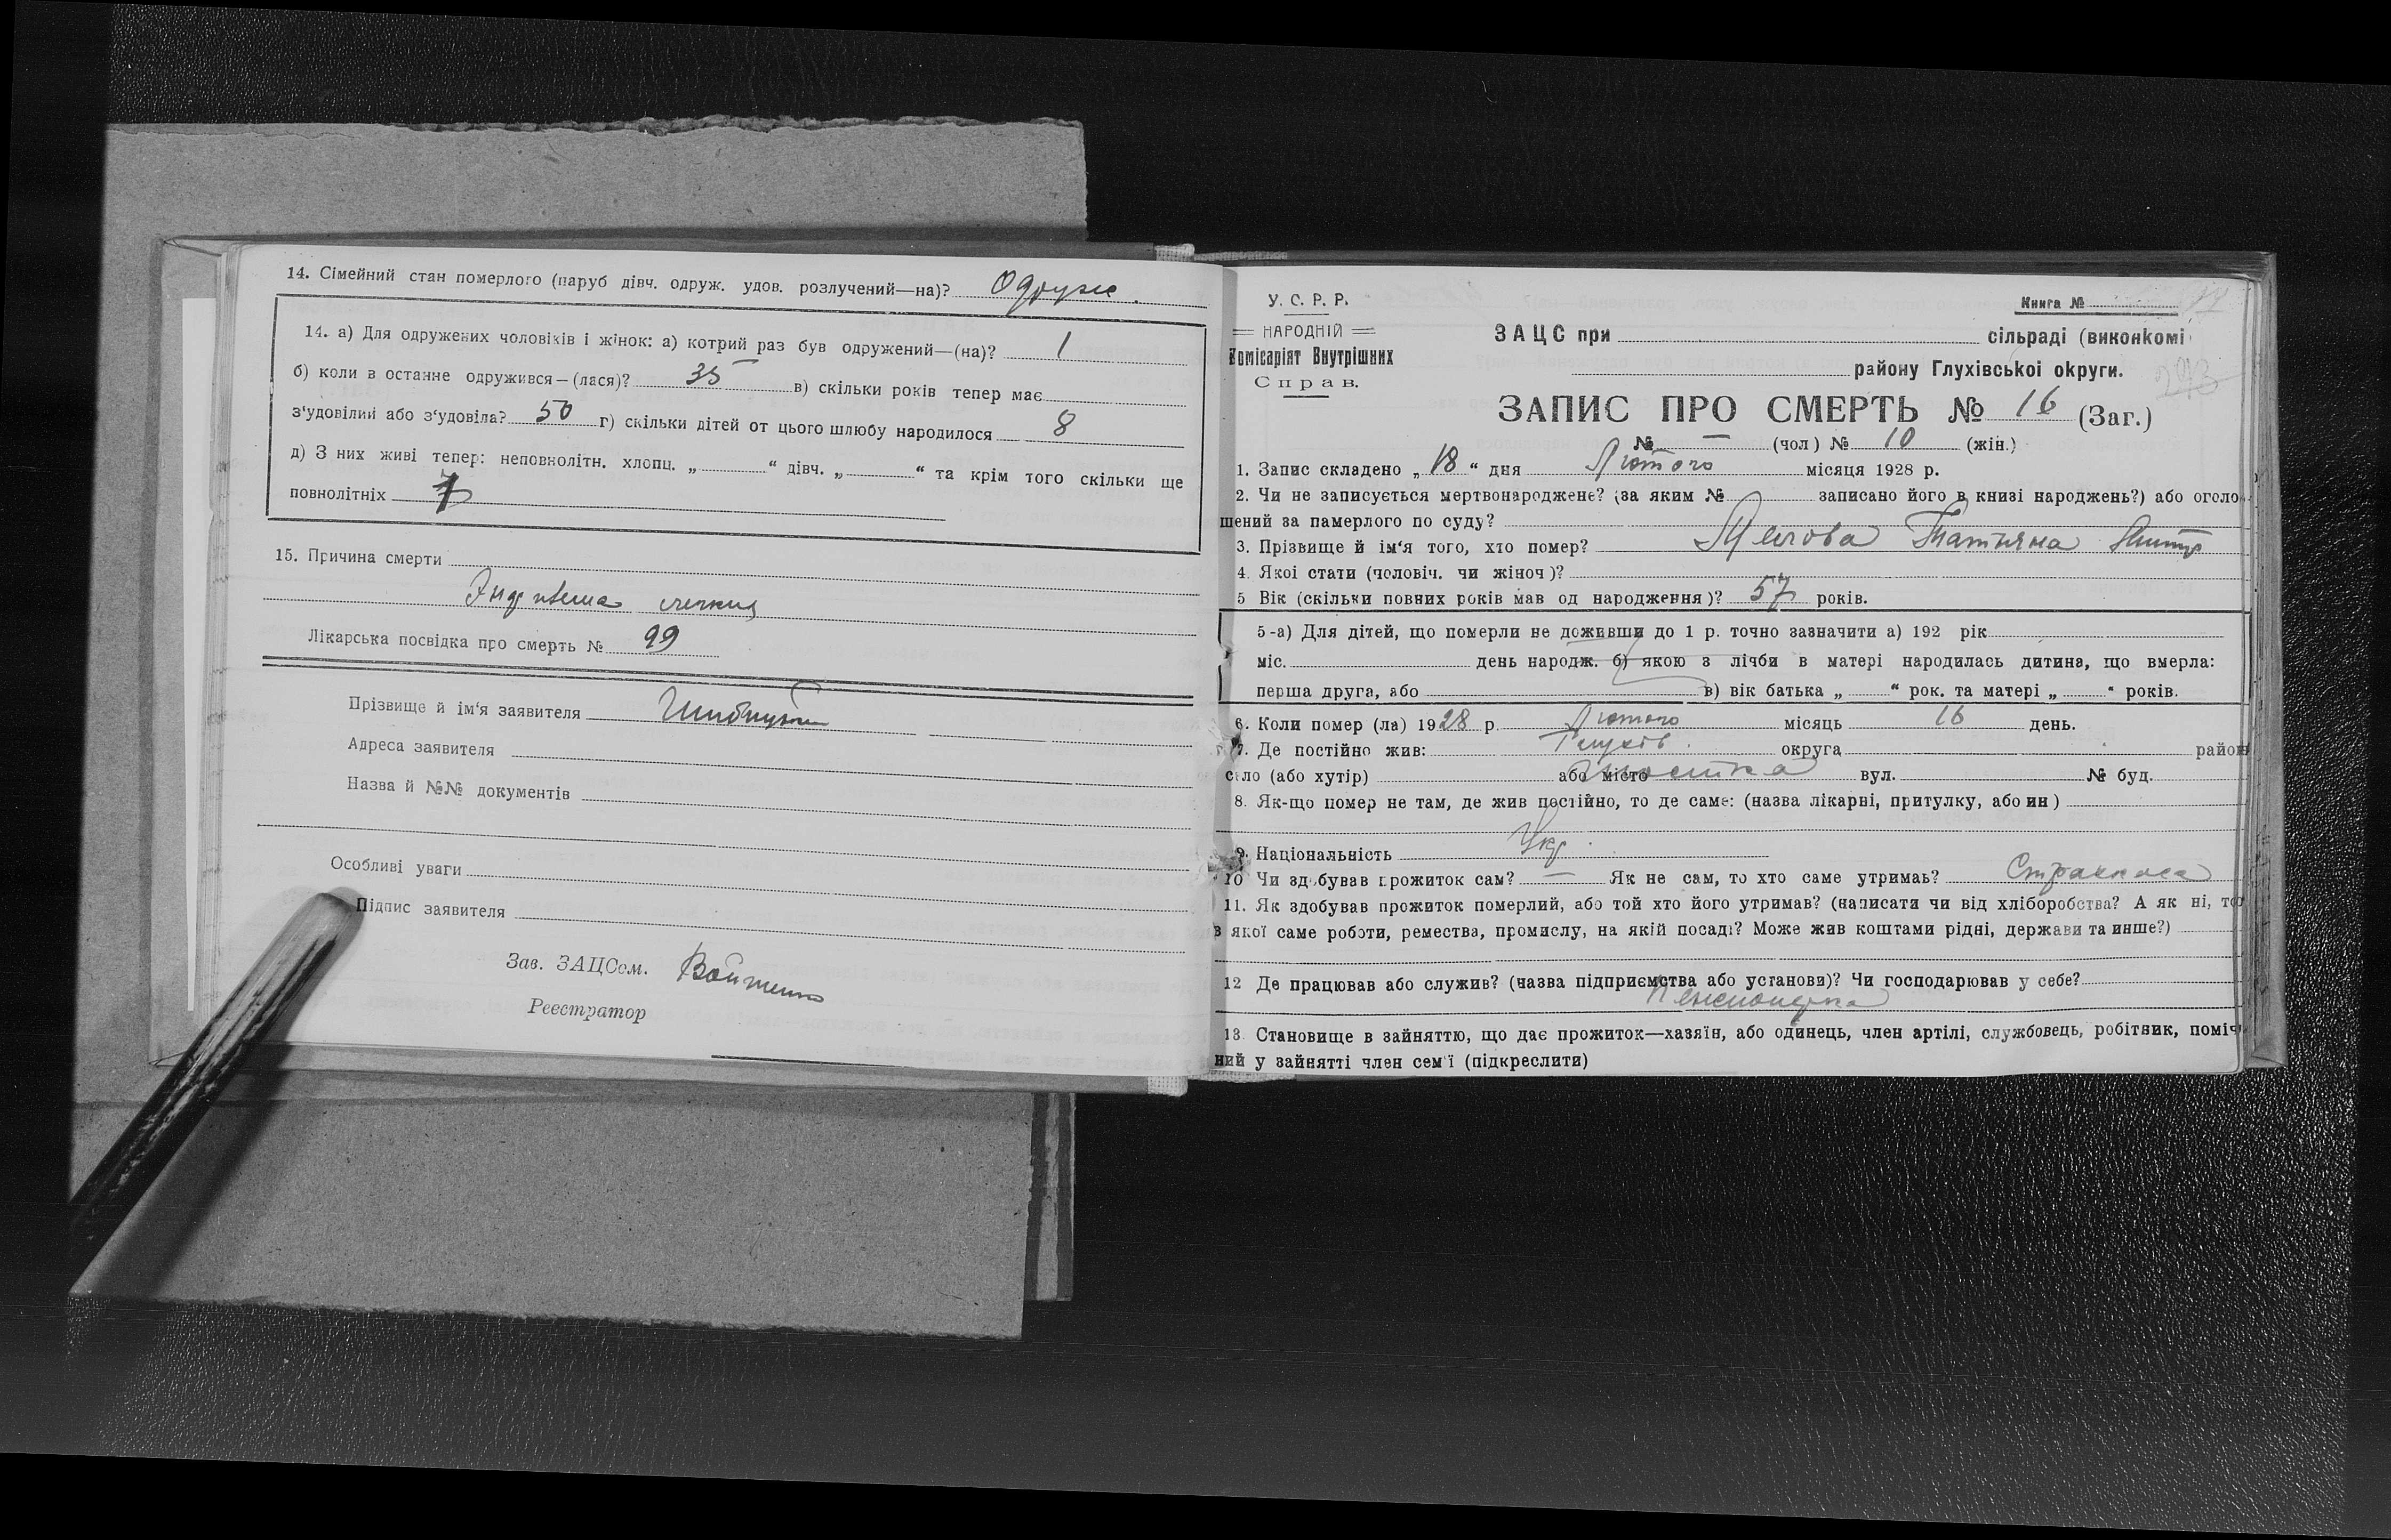 14. Сімейний стан померлого (паруб дівч. одруж. удов. розлучений—на)? Одруже.
14. а) Для одружених чоловіків і жінок: а) котрий раз був одружений—(на)? 1
б) коли в останне одружився—(лася)? 35 в) скільки років тепер має
з'удовілий або з'удовіла? 50 г) скільки дітей от цього шлюбу народилося 8
д) З них живі тепер: неповнолітн. хлопц. „ “ дівч. „ “ та крім того скільки ще
повнолітніх 7
15. Причина смерти
легких
Лікарська посвідка про смерть № 99
Прізвище й ім'я заявителя
Адреса заявителя
Назва й №№ документів
Особливі уваги
Підпис заявителя
Зав. ЗАЦСом. Войтенко
Реестратор
У. С. Р. Р.
НАРОДНІЙ
Комісаріят Внутрішних
Справ.
Книга №
ЗАЦС при сільраді (виконкомі
району Глухівської округи.
293
ЗАПИС ПРО СМЕРТЬ № 16 (Заг.)
№ — (чол) № 10 (жін.)
1. Запис складено „18“ дня Лютого місяця 1928 р.
2. Чи не записується мертвонароджене? (за яким № записано його в книзі народжень?) або оголо-
шений за памерлого по суду?
3. Прізвище й ім'я того, хто помер? Татьяна Дмитр
4. Якої стати (чоловіч. чи жіноч)?
5 Вік (скільки повних років мав од народження)? 57 років.
5-а) Для дітей, що померли не доживши до 1 р. точно зазначити а) 192 рік
міс. день народж. б) якою з лічби в матері народилась дитина, що вмерла:
перша друга, або в) вік батька „ “ рок. та матері „ “ років.
6. Коли помер (ла) 1928 р. Лютого місяць 16 день.
7. Де постійно жив: Глухів. округа район
село (або хутір) або місто Шостка вул. № буд.
8. Як-що помер не там, де жив постійно, то де саме: (назва лікарні, притулку, або ин)
9. Національність Укр.
10 Чи здобував прожиток сам? — Як не сам, то хто саме утримав? Страхкаса
11. Як здобував прожиток померлий, або той хто його утримав? (написати чи від хліборобства? А як ні, то
в якої саме роботи, ремества, промислу, на якій посаді? Може жив коштами рідні, держави та инше?)
12 Де працював або служив? (назва підприємства або установи)? Чи господарював у себе?
Пенсионерка
13. Становище в зайняттю, що дає прожиток—хазяїн, або одинець, член артілі, службовець, робітвик, поміч-
ний у зайнятті член сем'ї (підкреслити)